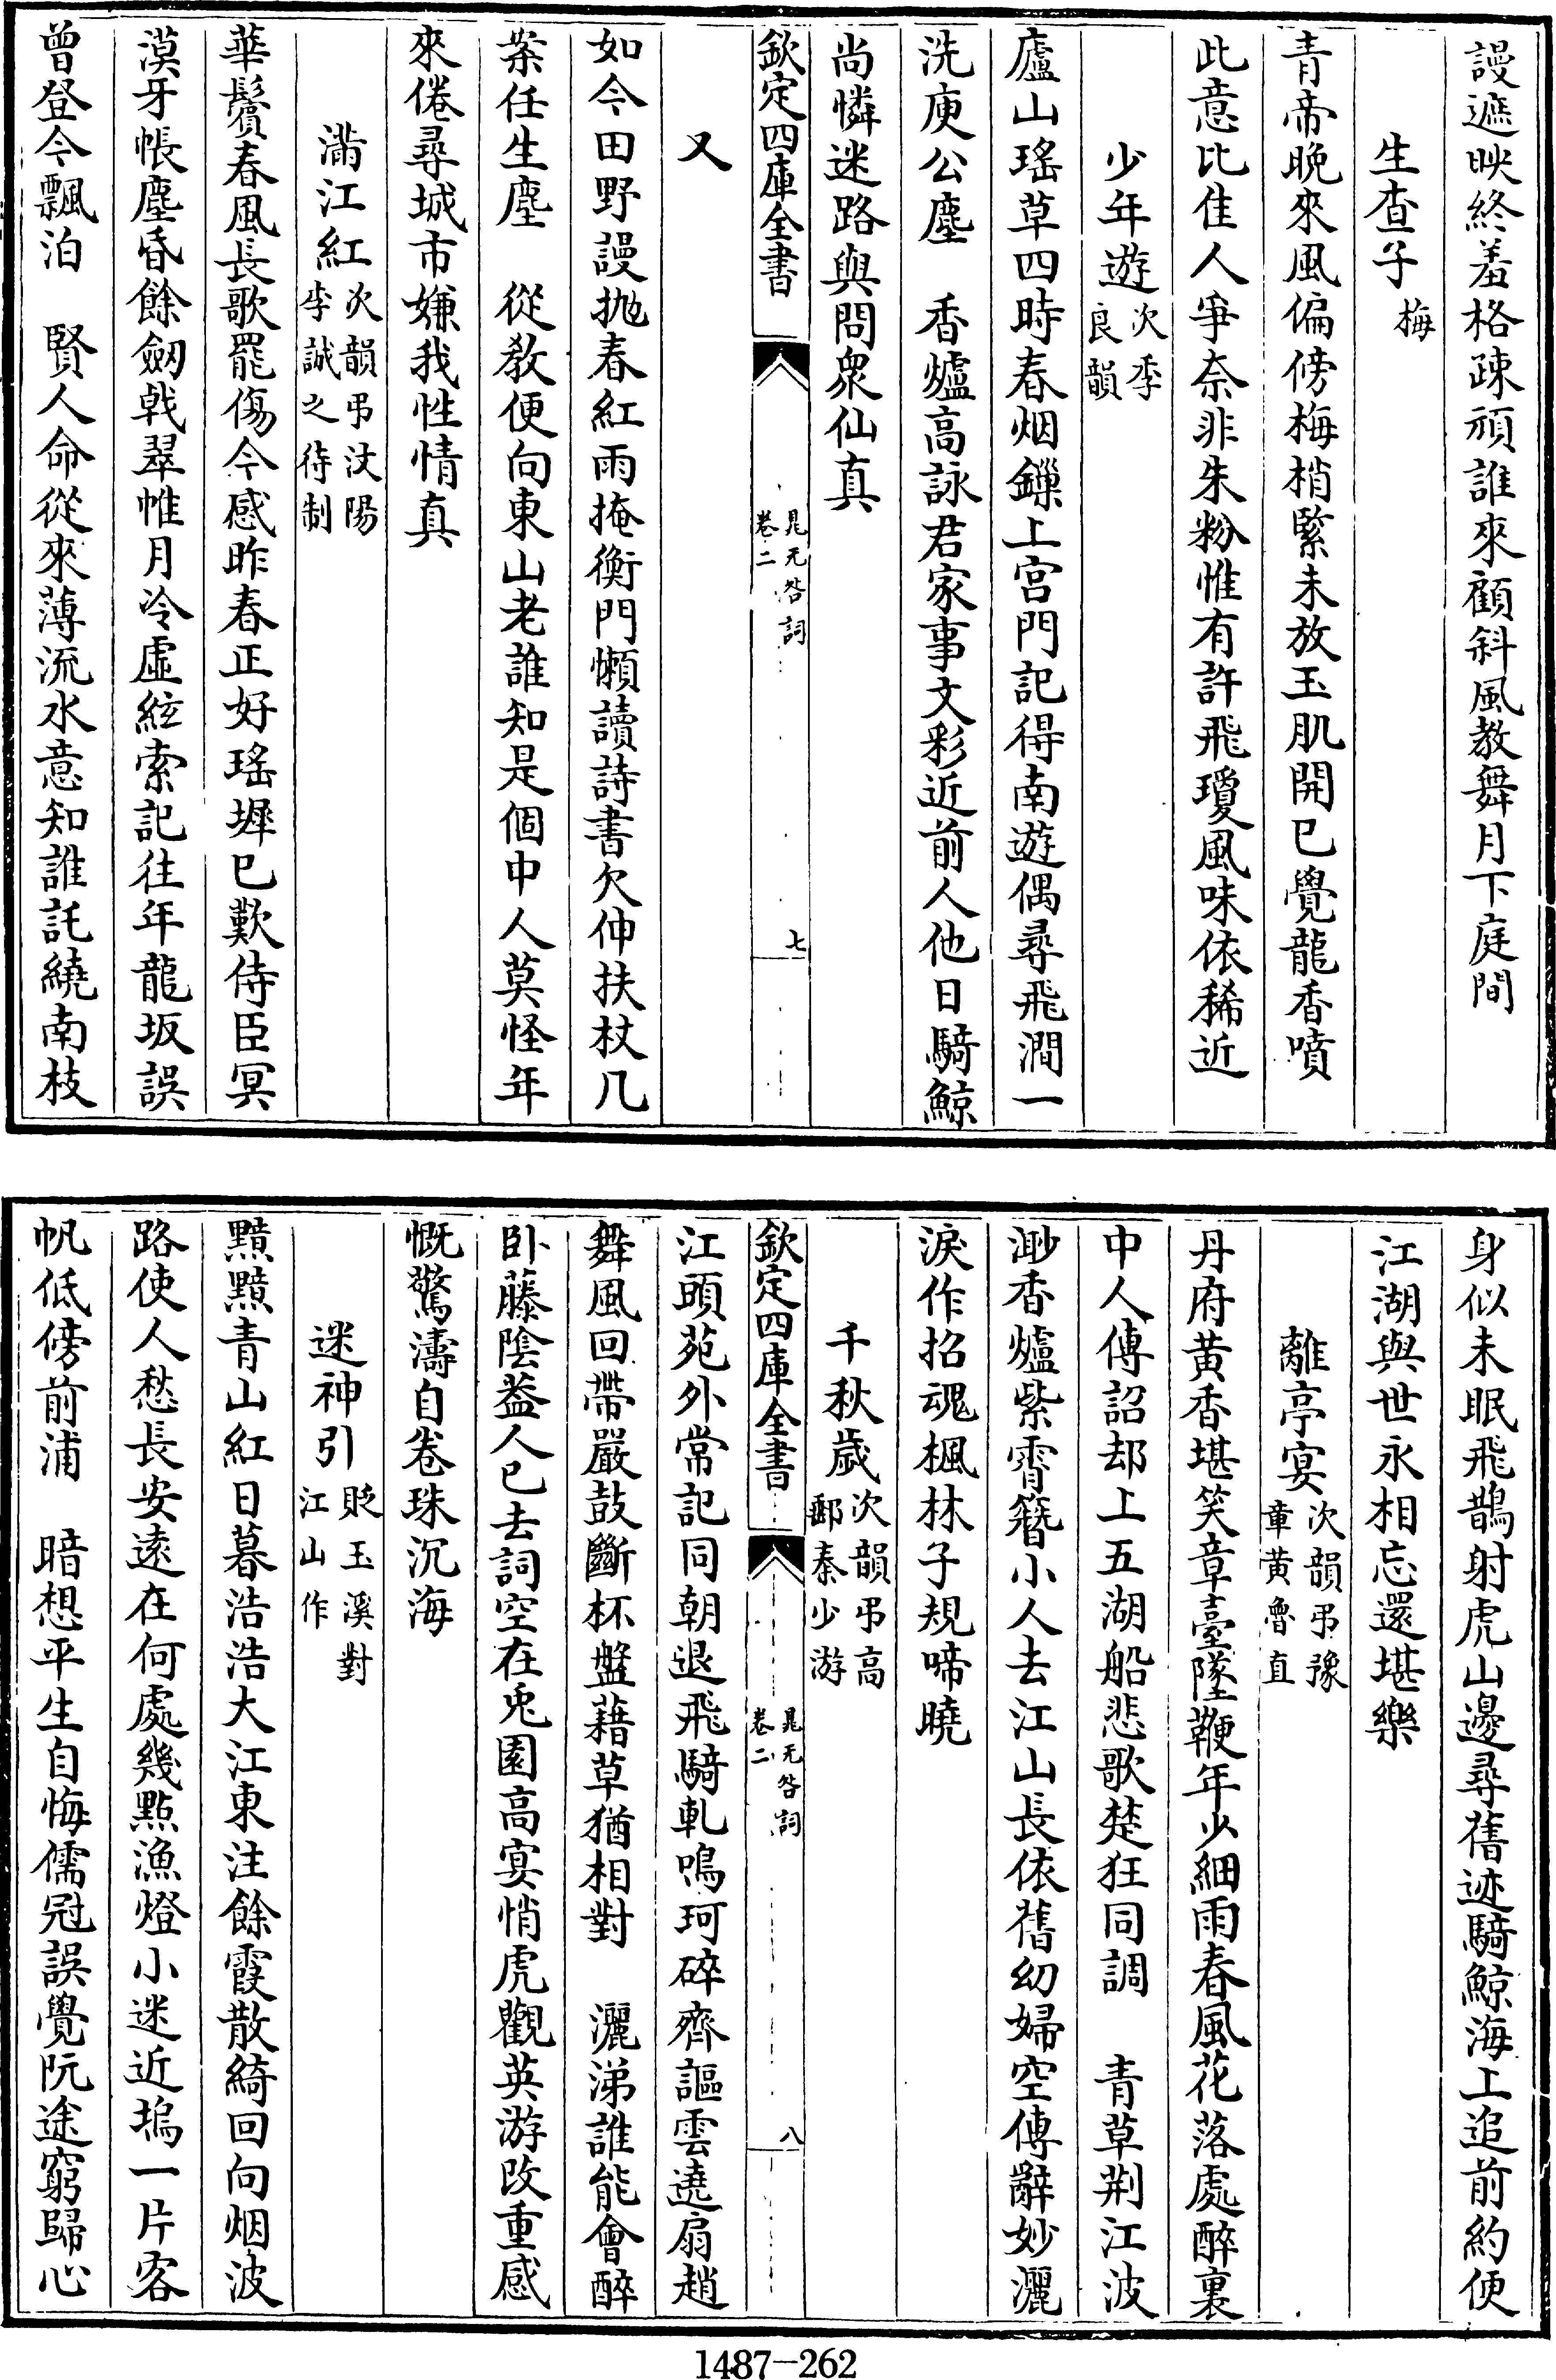 謾遮映終羞格疎頑誰來顧斜風教舞月下庭間
生查子梅
青帝晚來風偏傍梅梢緊未放玉肌開已覺龍香噴
此意比佳人爭奈非朱粉惟有許飛瓊風味依稀近
少年遊次季良韻
廬山瑤草四時春烟鏁上宮門記得南遊偶尋飛澗一
洗庾公塵　香爐高詠君家事文彩近前人他日騎鯨
尚憐迷路與問衆仙真
欽定四庫全書
晁无咎詞
卷二
七
又
如今田野謾抛春紅雨掩衡門懶讀詩書欠伸扶杖几
案任生塵　從教便向東山老誰知是個中人莫怪年
來倦尋城市嫌我性情真
滿江紅次韻弔汶陽李誠之待制
華鬢春風長歌罷傷今感昨春正好瑤墀已歎侍臣冥
漠牙帳塵昏餘劒戟翠帷月冷虛絃索記往年龍坂誤
曾登今飄泊　賢人命從來薄流水意知誰託繞南枝
身似未眠飛鵲射虎山邊尋舊迹騎鯨海上追前約便
江湖與世永相忘還堪樂
離亭宴次韻弔豫章黄魯直
丹府黄香堪笑章臺墜鞭年少細雨春風花落處醉裏
中人傳詔却上五湖船悲歌楚狂同調　青草荆江波
渺香爐紫霄簪小人去江山長依舊幼婦空傳辭妙灑
淚作招魂楓林子規啼曉
千秋歲次韻弔高郵秦少游
欽定四庫全書
晁无咎詞
卷二
八
江頭苑外常記同朝退飛騎軋鳴珂碎齊謳雲遶扇趙
舞風回帶嚴鼓斷杯盤藉草猶相對　灑涕誰能會醉
卧藤陰葢人已去詞空在兎園高宴悄虎觀英游改重感
慨驚濤自卷珠沉海
迷神引貶玉溪對江山作
黯黯青山紅日暮浩浩大江東注餘霞散綺回向烟波
路使人愁長安遠在何處幾點漁燈小迷近塢一片客
帆低傍前浦　暗想平生自悔儒冠誤覺阮途窮歸心
1487-262